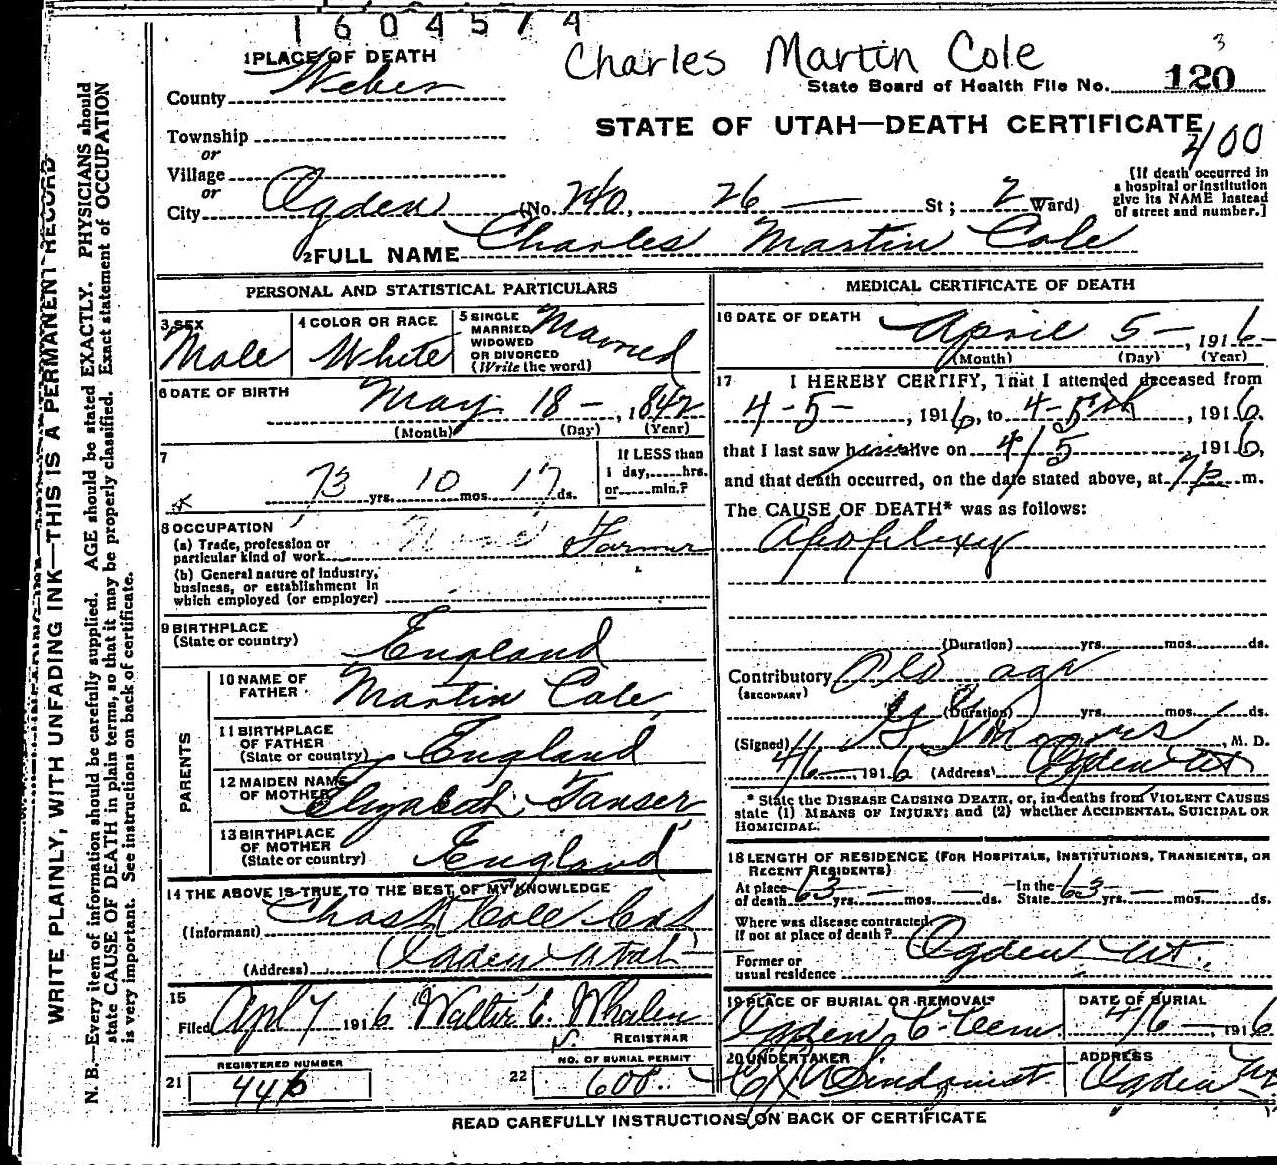 1604574
Charles Martin Cole
3
1 PLACE OF DEATH
State Board of Health File No. 120
County Weber
STATE OF UTAH—DEATH CERTIFICATE
400
Township
or
Village
or
City Ogden (No. 240, 26 — St; 2 Ward)
[If death occurred in
a hospital or institution
give its NAME instead
of street and number.]
2 FULL NAME Charles Martin Cole
PERSONAL AND STATISTICAL PARTICULARS
3 SEX
Male
4 COLOR OR RACE
White
5 SINGLE
MARRIED
WIDOWED
OR DIVORCED
(Write the word)
Married
6 DATE OF BIRTH
May 18 — , 1842
(Month) (Day) (Year)
7
73 yrs. 10 mos. 17 ds.
If LESS than
1 day, hrs.
or min.?
8 OCCUPATION
(a) Trade, profession or
particular kind of work None Farmer
(b) General nature of industry,
business, or establishment in
which employed (or employer)
9 BIRTHPLACE
(State or country) England
PARENTS
10 NAME OF
FATHER Martin Cole
11 BIRTHPLACE
OF FATHER
(State or country) England
12 MAIDEN NAME
OF MOTHER Elizabeth Tanser
13 BIRTHPLACE
OF MOTHER
(State or country) England
14 THE ABOVE IS TRUE TO THE BEST OF MY KNOWLEDGE
(Informant) Chas Cole
(Address) Ogden Utah
15
Filed Apl 7 1916 Walter E. Whalen
REGISTRAR
REGISTERED NUMBER
21 446
NO. OF BURIAL PERMIT
22 608.
MEDICAL CERTIFICATE OF DEATH
16 DATE OF DEATH
April 5 — , 1916
(Month) (Day) (Year)
17 I HEREBY CERTIFY, That I attended deceased from
4-5- , 1916, to 4-5th , 1916.
that I last saw him alive on 4/5 1916,
and that death occurred, on the date stated above, at 7 p. m.
The CAUSE OF DEATH* was as follows:
Apoplexy
(Duration) yrs. mos. ds.
Contributory Old age
(SECONDARY)
(Duration) yrs. mos. ds.
(Signed) , M. D.
4/6 — , 1916 (Address) Ogden Ut
* State the DISEASE CAUSING DEATH, or, in deaths from VIOLENT CAUSES
state (1) MEANS OF INJURY; and (2) whether ACCIDENTAL, SUICIDAL OR
HOMICIDAL.
18 LENGTH OF RESIDENCE (FOR HOSPITALS, INSTITUTIONS, TRANSIENTS, OR
RECENT RESIDENTS)
At place
of death 63 yrs. — mos. — ds.
In the
State 63 yrs. — mos. — ds.
Where was disease contracted
if not at place of death?
Former or
usual residence
Ogden Ut.
19 PLACE OF BURIAL OR REMOVAL
Ogden C. Cem
DATE OF BURIAL
4/6 — 1916
20 UNDERTAKER
Lindquist
ADDRESS
Ogden Ut
READ CAREFULLY INSTRUCTIONS ON BACK OF CERTIFICATE
WRITE PLAINLY, WITH UNFADING INK—THIS IS A PERMANENT RECORD
N. B.—Every item of information should be carefully supplied. AGE should be stated EXACTLY. PHYSICIANS should
state CAUSE OF DEATH in plain terms, so that it may be properly classified. Exact statement of OCCUPATION
is very important. See instructions on back of certificate.